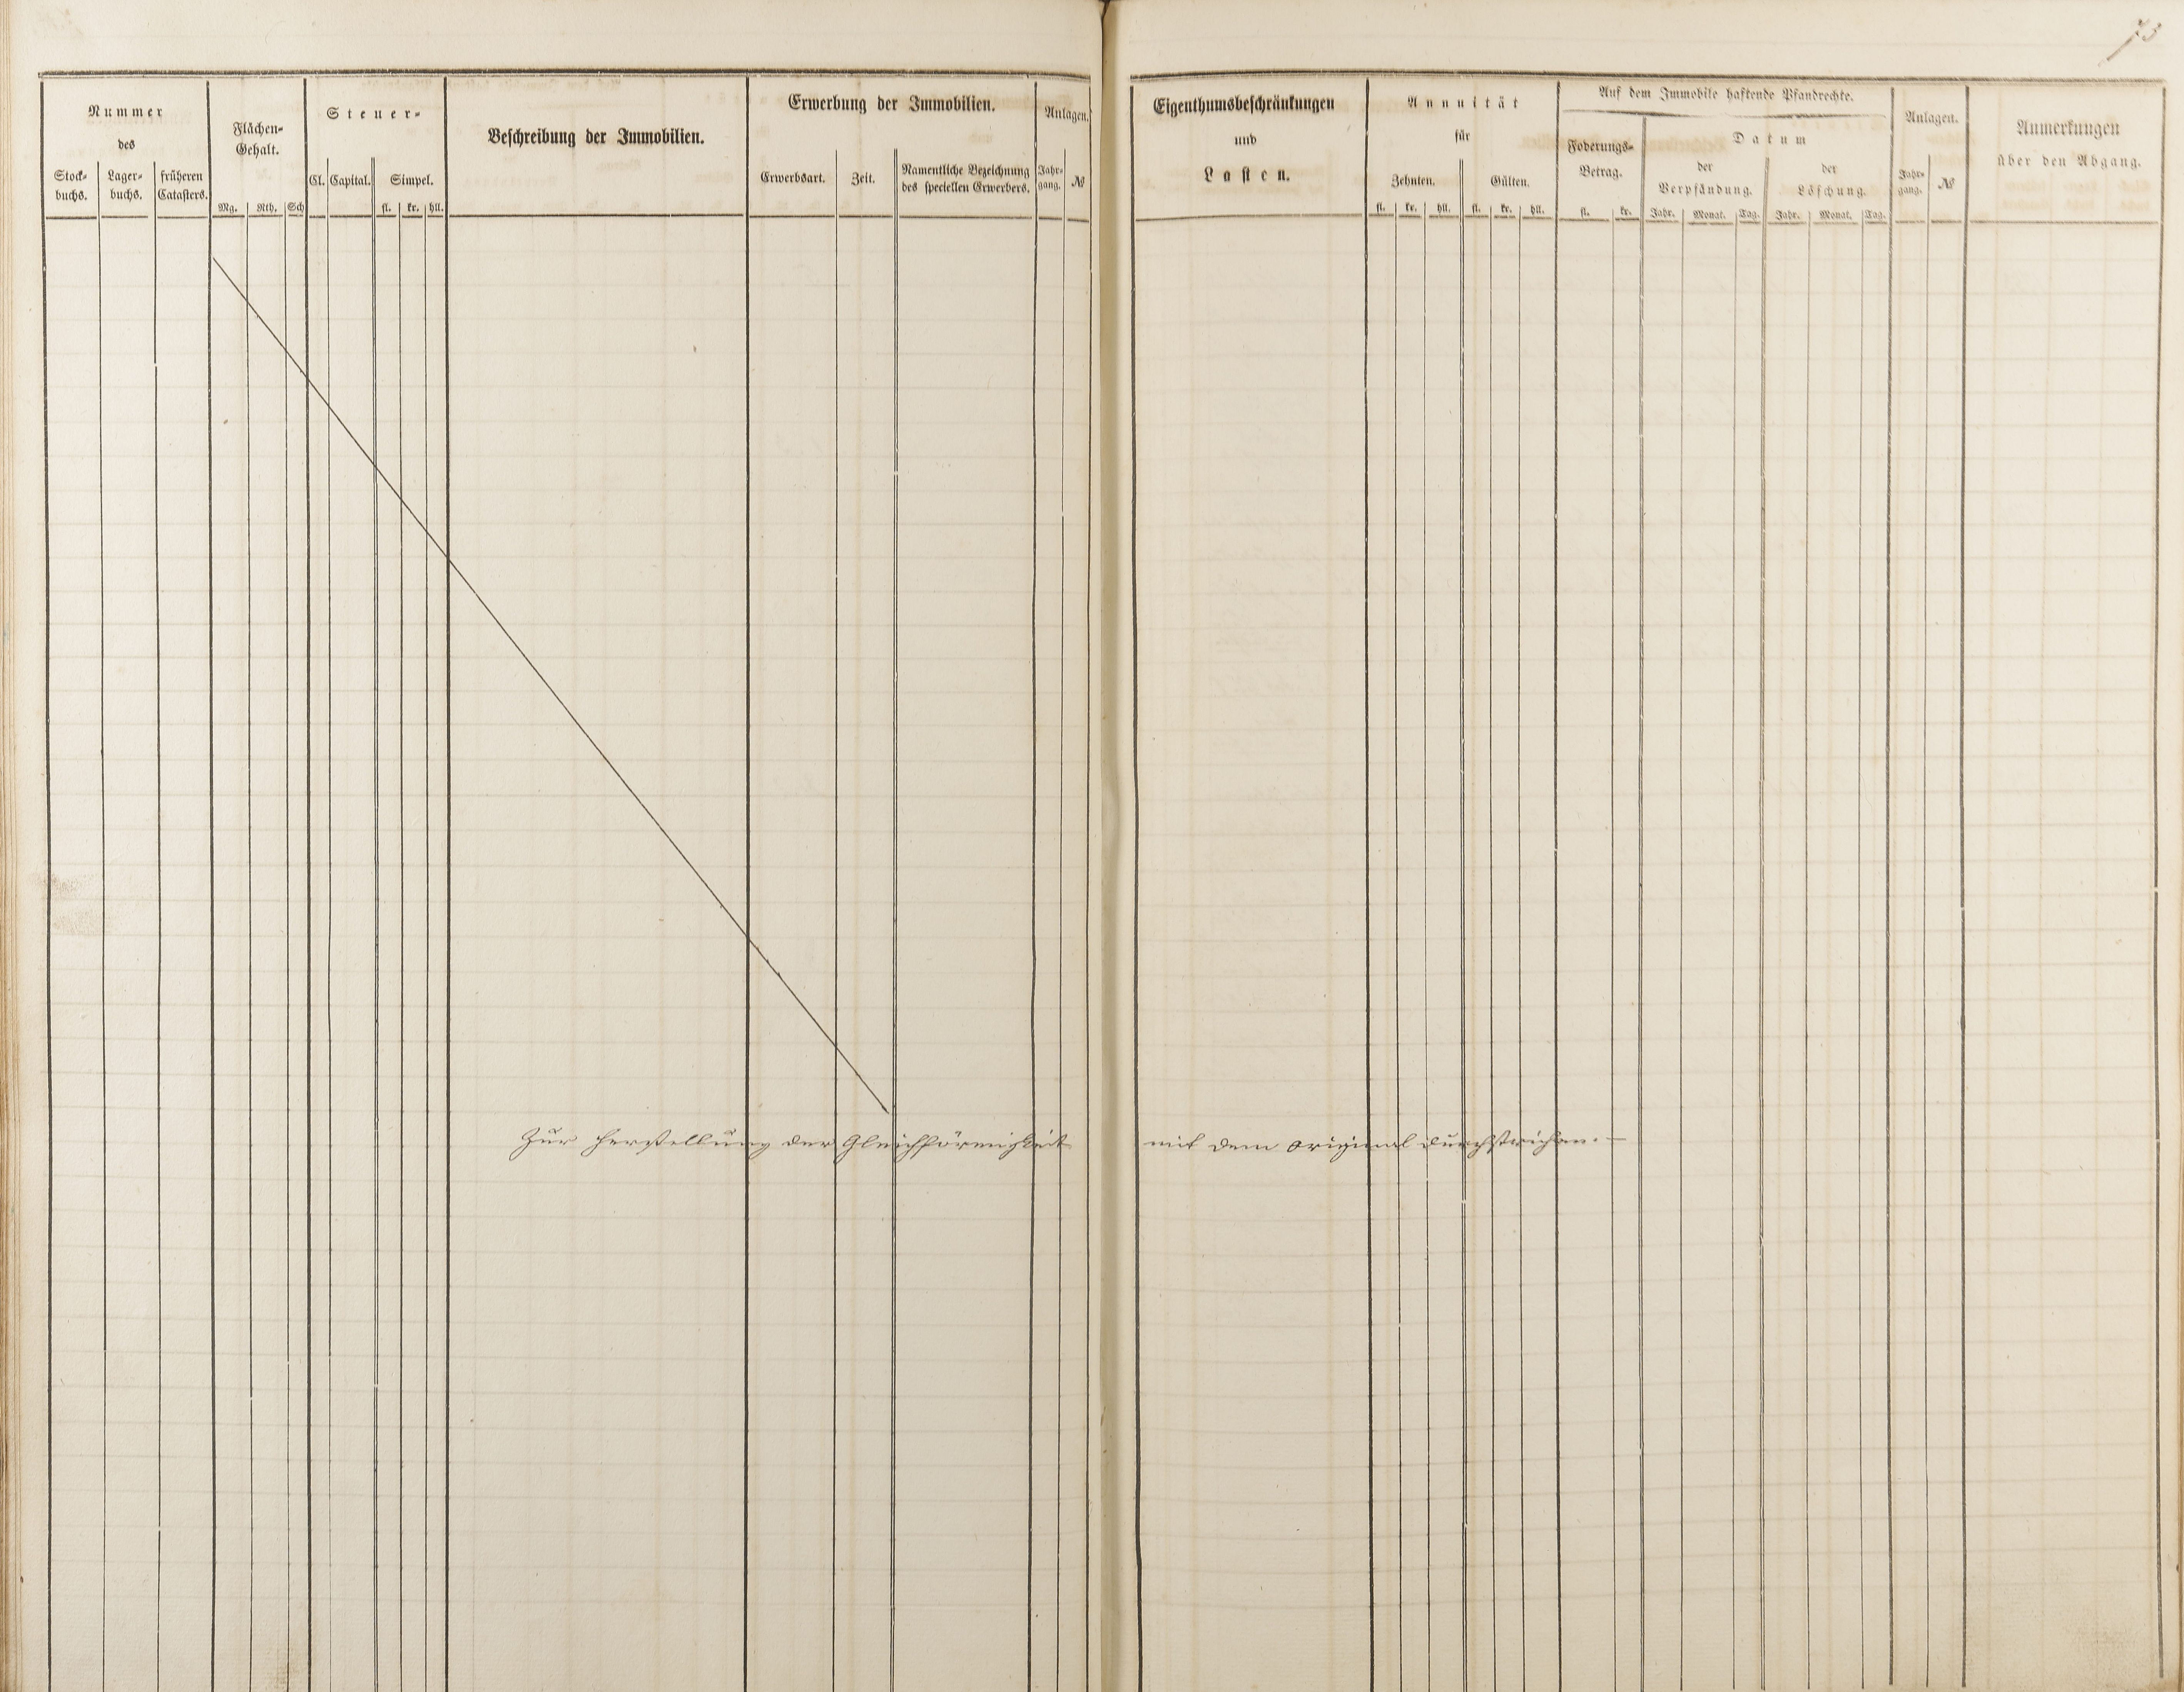 73
Nummer
des
Stock-
buchs.
Lager-
buchs.
früheren
Catasters.
Flächen-
Gehalt.
Mg. Rth. Sch
Steuer-
Cl. Capital. Simpel.
fl. kr. hll.
Beschreibung der Immobilien.
Erwerbung der Immobilien.
Erwerbsart. Zeit.
Namentliche Bezeichnung
des speciellen Erwerbers.
Anlagen.
Jahr-
gang.
№
Eigenthumsbeschränkungen
und
Lasten.
Annuität
für
Zehnten. Gülten.
fl. kr. hll. fl. kr. hll.
Auf dem Immobile haftende Pfandrechte.
Foderungs-
Betrag.
fl. kr.
Datum
der
Verpfändung.
Jahr. Monat. Tag.
der
Löschung.
Jahr. Monat. Tag.
Anlagen.
Jahr-
gang.
№
Anmerkungen
über den Abgang.
Zur Herstellung der Gleichförmigkeit mit dem Original durchstrichen. —